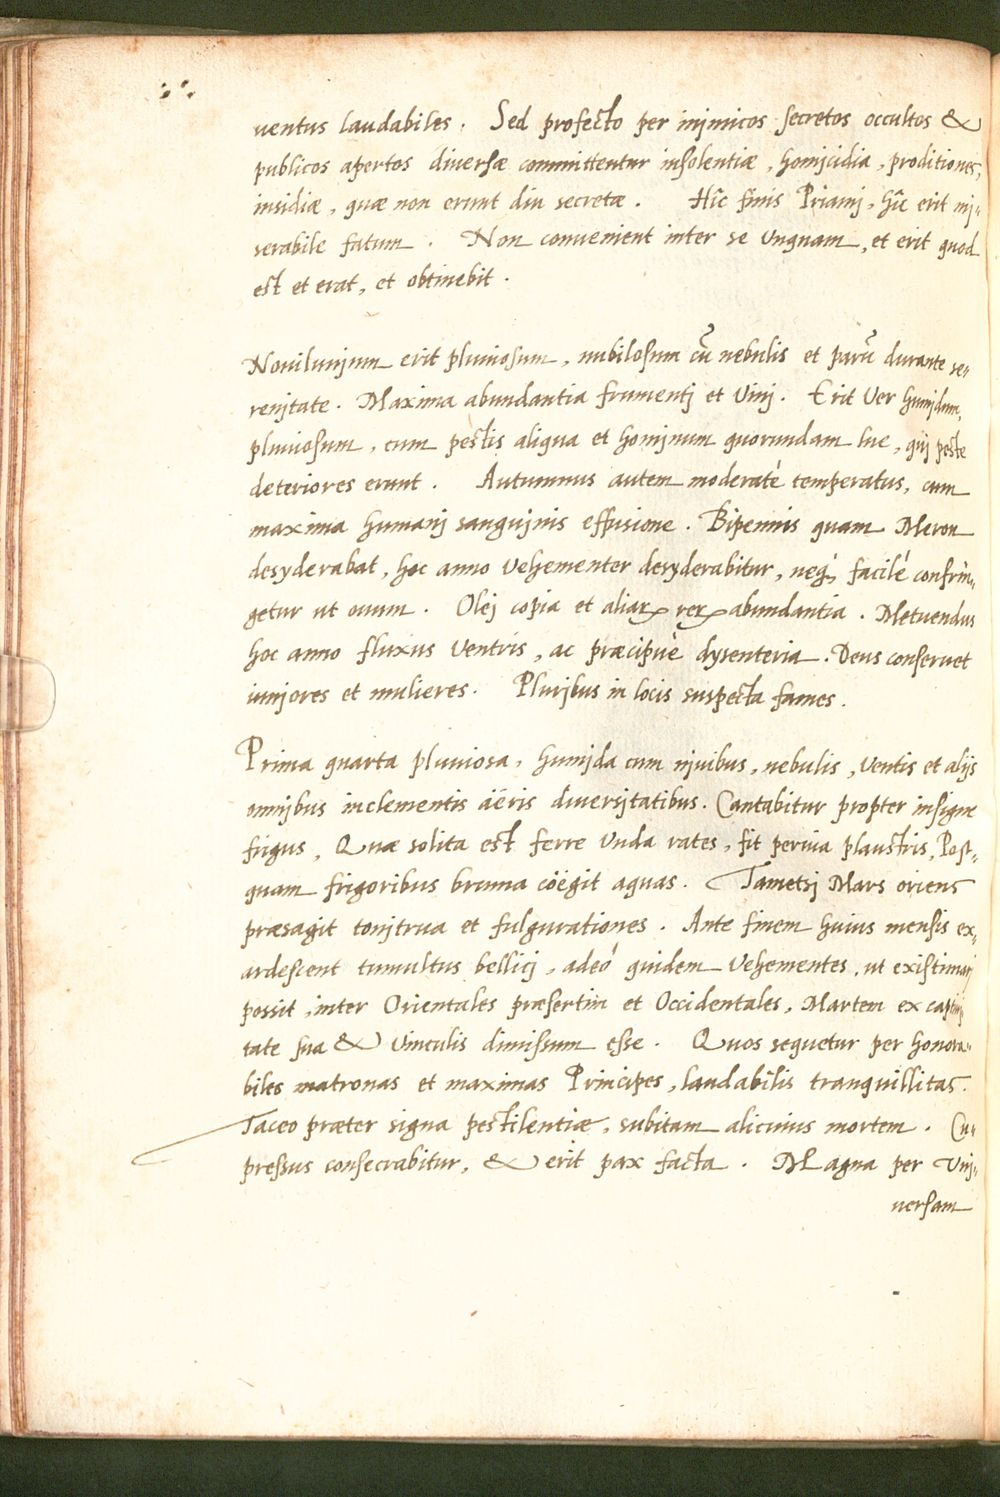 uentus laudabiles. Sed profecto per inimicos secretos occultos &
publicos apertos diuersæ committentur insolentiæ, homicidia, proditiones,
insidiæ, quæ non erunt diu secretæ. Hîc finis Priamj, hîc erit mj-
serabile fatum. Non convenient inter se unquam, et erit quod
est et erat, et obtinebit.
Nouilunjum erit pluuiosum, nubilosum cũ nebulis et parũ durante se-
renjtate. Maxima abundantia frumentj et Vinj. Erit Ver humjdum,
pluuiosum, cum pestis aliqua et homjnum quorundam lue, quj peste
deteriores erunt. Autumnus autem moderatè temperatus, cum
maxima humanj sangujnis effusione. Bipennis quam Meron
desyderabat, hoc anno Vehementer desyderabitur, neq; facilè confrin-
getur ut ouum. Olej copia et aliaꝝ reꝝ abundantia. Metuendus
hoc anno fluxus Ventris, ac præcipuè dysenteria. Deus conseruet
iunjores et mulieres. Plurjbus in locis suspecta fames.
Prima quarta pluuiosa, humjda cum njuibus, nebulis, Ventis et alijs
omnjbus inclementis äëris diuersjtatibus. Cantabitur propter insigne
frigus, Quæ solita est ferre Vnda rates, fit peruia plaustris, Post-
quam frigoribus bruma cöëgit aquas. Tametsj Mars oriens
præsagit tonjtrua et fulgurationes. Ante finem huius mensis ex-
ardescent tumultus bellicj, adeò quidem Vehementes, ut existimarj
possit, inter Orientales præsertim et Occidentales, Martem ex captiuj-
tate sua & Vinculis dimissum esse. Quos sequetur per honora-
biles matronas et maximas Principes, laudabilis tranquillitas.
Taceo præter signa pestilentiæ, subitam alicuius mortem. Cu-
pressus consecrabitur, & erit pax facta. Magna per Vnj-
uersam